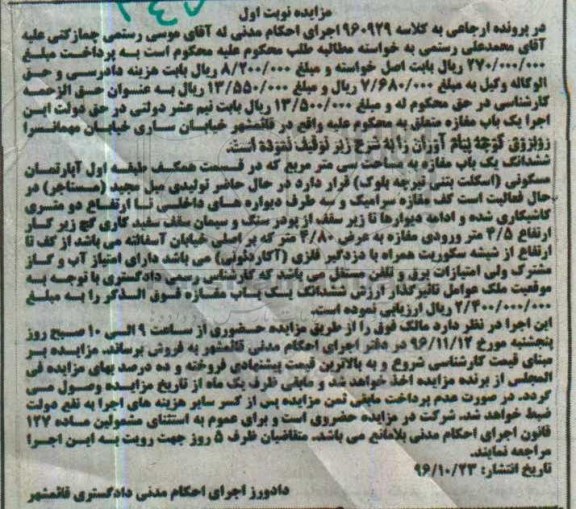 ۲۴۵
مزایده نوبت اول
در پرونده ارجاعی به کلاسه ۹۶۰۹۲۹ اجرای احکام مدنی له آقای موسی رستمی جمازکتی علیه
آقای محمدعلی رستمی به خواسته مطالبه طلب محکوم علیه محکوم است به پرداخت مبلغ
۲۷۰/۰۰۰/۰۰۰ ریال بابت اصل خواسته و مبلغ ۸/۲۰۰/۰۰۰ ریال بابت هزینه دادرسی و حق
الوکاله وکیل به مبلغ ۷/۶۸۰/۰۰۰ ریال و مبلغ ۱۳/۵۵۰/۰۰۰ ریال به عنوان حق الزحمه
کارشناسی در حق محکوم له و مبلغ ۱۳/۵۰۰/۰۰۰ ریال بابت نیم عشر دولتی در حق دولت این
اجرا یک باب مغازه متعلق به محکوم علیه واقع در قائمشهر خیابان ساری خیابان مهمانسرا
روبروی کوچه پیام آوران را به شرح زیر توقیف نموده است.
ششدانگ یک باب مغازه به مساحت سی متر مربع که در قسمت همکف طبقه اول آپارتمان
مسکونی (اسکلت بتنی تیرچه بلوک) قرار دارد در حال حاضر تولیدی مبل مجید (مستاجر) در
حال فعالیت است کف مغازه سرامیک و سه طرف دیواره های داخلی تا ارتفاع دو متری
کاشیکاری شده و ادامه دیوارها تا زیر سقف از پودر سنگ و سیمان سقف سفید کاری گچ زیر کار
ارتفاع ۴/۵ متر ورودی مغازه به عرض ۴/۸۰ متر که بر اصلی خیابان آسفالته می باشد از کف تا
ارتفاع از شیشه سکوریت همراه با دزدگیر فلزی (آکاردئونی) می باشد دارای امتیاز آب و گاز
مشترک ولی امتیازات برق و تلفن مستقل می باشد که کارشناس رسمی دادگستری با توجه به
موقعیت ملک عوامل تاثیرگذار ارزش ششدانگ یک باب مغازه فوق الذکر را به مبلغ
۲/۴۰۰/۰۰۰/۰۰۰ ریال ارزیابی نموده است.
این اجرا در نظر دارد مالک فوق را از طریق مزایده حضوری از ساعت ۹ الی ۱۰ صبح روز
پنجشنبه مورخ ۹۶/۱۱/۱۲ در دفتر اجرای احکام مدنی قائمشهر به فروش برساند. مزایده بر
مبنای قیمت کارشناسی شروع و به بالاترین قیمت پیشنهادی فروخته و ده درصد بهای مزایده فی
المجلس از برنده مزایده اخذ خواهد شد و مابقی ظرف یک ماه از تاریخ مزایده وصول می
گردد. در صورت عدم پرداخت مابقی ثمن مزایده پس از کسر سایر هزینه های اجرا به نفع دولت
ضبط خواهد شد. شرکت در مزایده حضروی است و برای عموم به استثنای مشمولین ماده ۱۲۷
قانون اجرای احکام مدنی بلامانع می باشد. متقاضیان ظرف ۵ روز جهت رویت به این اجرا
مراجعه نمایند.
تاریخ انتشار: ۹۶/۱۰/۲۳
دادورز اجرای احکام مدنی دادگستری قائمشهر